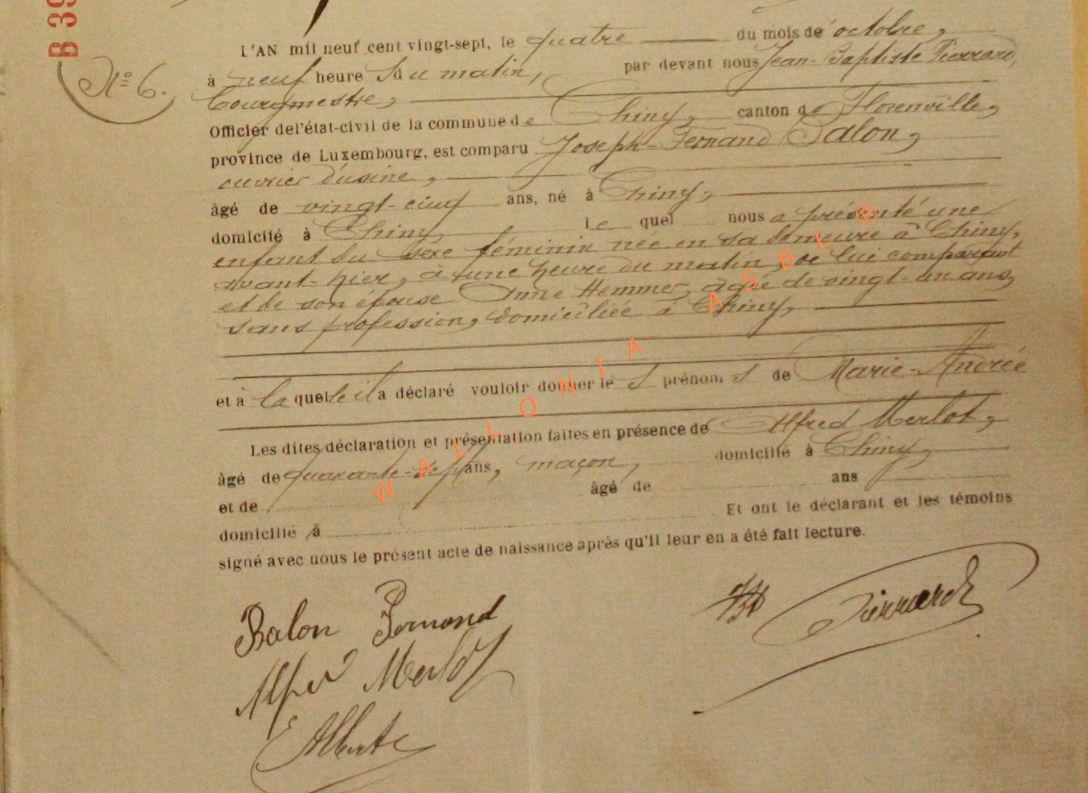 B 39
N° 6.
L'AN mil neuf cent vingt-sept, le quatre du mois de octobre,
à neuf heure s du matin, par devant nous Jean-Baptiste Pierrard,
bourgmestre,
Officier de l'état-civil de la commune de Chiny, canton de Florenville,
province de Luxembourg, est comparu Joseph-Fernand Balon,
ouvrier d'usine,
âgé de vingt-cinq ans, né à Chiny,
domicilié à Chiny, le quel nous a présenté une
enfant du sexe féminin née en sa demeure à Chiny,
avant-hier, à une heure du matin, de lui comparant
et de son épouse Anne Hemmer, âgée de vingt-un ans,
sans profession, domiciliée à Chiny,
et à la quelle il a déclaré vouloir donner le s prénom s de Marie-Andrée
Les dites déclaration et présentation faites en présence de Alfred Merlot,
âgé de quarante-sept ans, maçon, domicilié à Chiny,
et de âgé de ans
domicilié à Et ont le déclarant et les témoins
signé avec nous le présent acte de naissance après qu'il leur en a été fait lecture.
WALLONIA ASBL ©
Balon Fernand Pierrard
Alfred Merlot